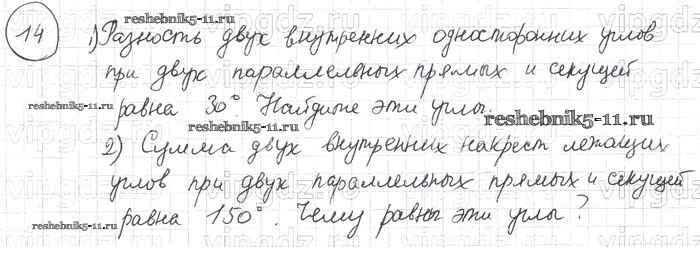 reshebnik5-11.ru
14
1) Разность двух внутренних односторонних углов
при двух параллельных прямых и секущей
reshebnik5-11.ru
равна 30° Найдите эти углы.
reshebnik5-11.ru
reshebnik5-11.ru
2) Сумма двух внутренних накрест лежащих
углов при двух параллельных прямых и секущей
reshebnik5-11.ru
равна 150°. Чему равны эти углы?